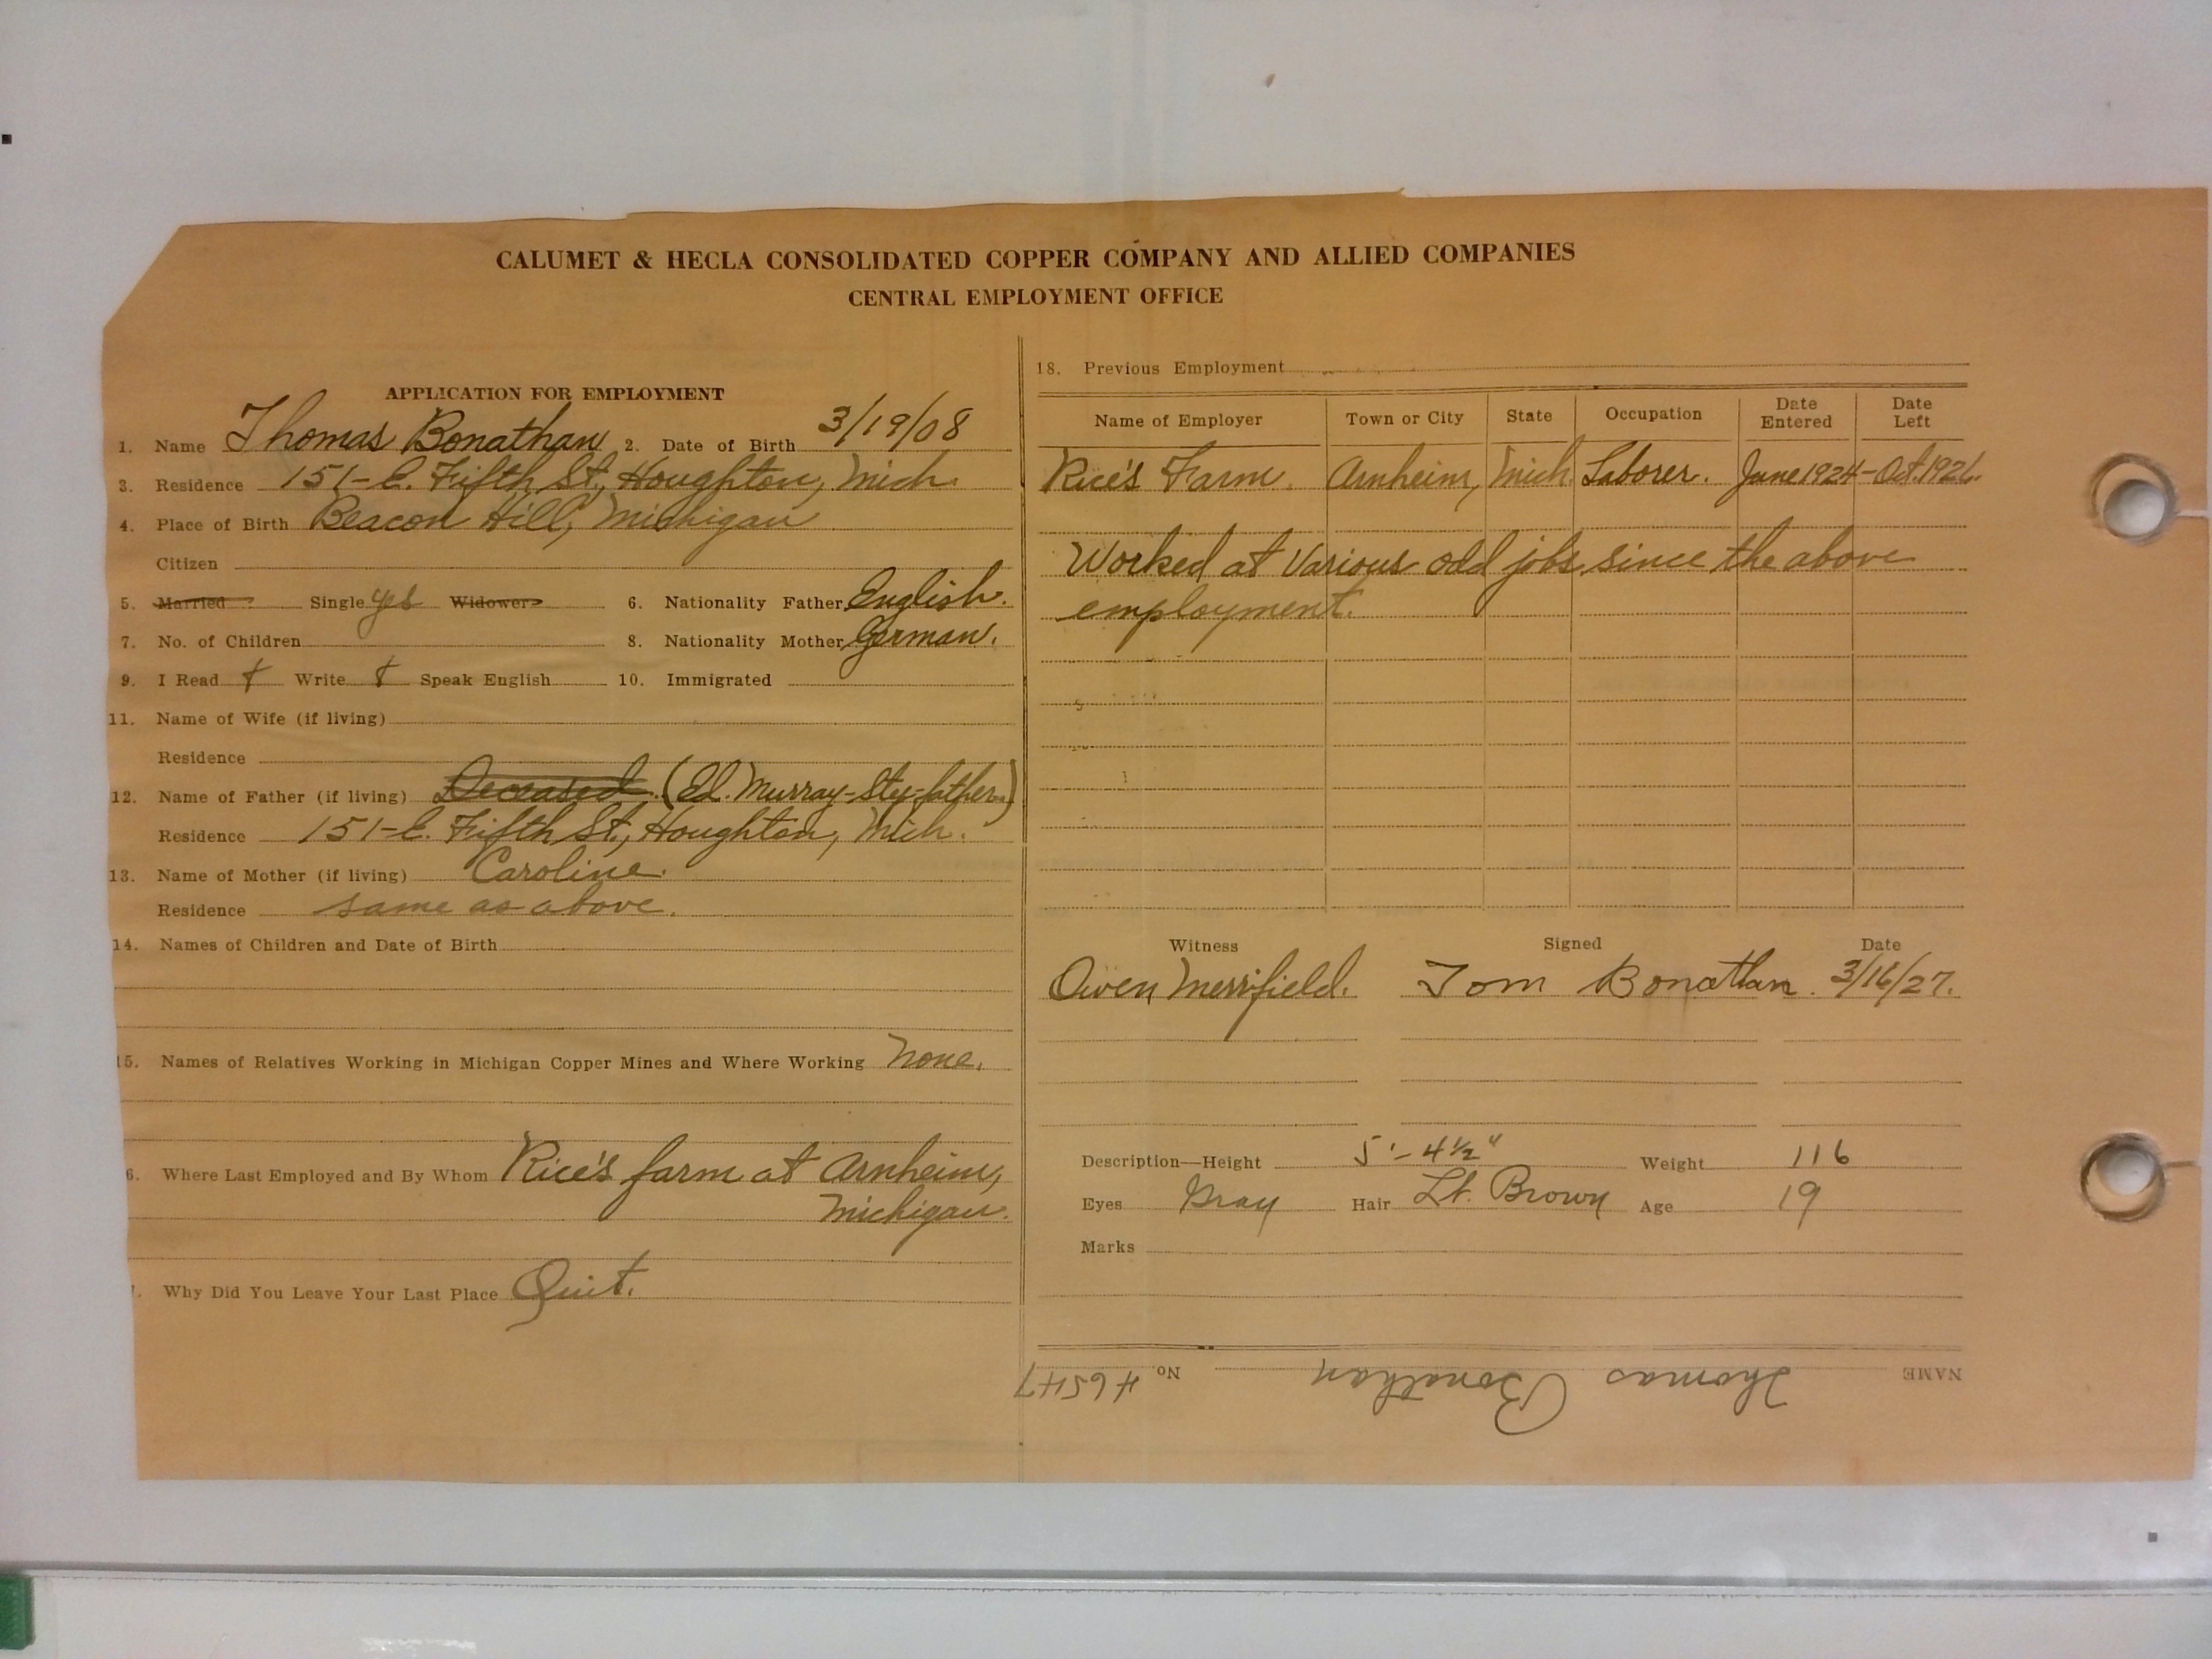 CALUMET & HECLA CONSOLIDATED COPPER COMPANY AND ALLIED COMPANIES
CENTRAL EMPLOYMENT OFFICE
APPLICATION FOR EMPLOYMENT
1. Name Thomas Bonathan 2. Date of Birth 3/19/08
3. Residence 151-E. Fifth St., Houghton, Mich.
4. Place of Birth Beacon Hill, Michigan
Citizen
5. Married Single yes Widower 6. Nationality Father English.
7. No. of Children 8. Nationality Mother German.
9. I Read Write Speak English 10. Immigrated
11. Name of Wife (if living)
Residence
12. Name of Father (if living) Deceased. (Ed. Murray-Step-father)
Residence 151-E. Fifth St., Houghton, Mich.
13. Name of Mother (if living) Caroline.
Residence same as above.
14. Names of Children and Date of Birth
15. Names of Relatives Working in Michigan Copper Mines and Where Working None.
6. Where Last Employed and By Whom Rice's farm at Arnheim,
Michigan.
Why Did You Leave Your Last Place Quit.
18. Previous Employment
Name of Employer Town or City State Occupation Date Entered Date Left
Rice's Farm. Arnheim, Mich. Laborer. June 1924-Oct. 1926.
Worked at Various odd jobs since the above
employment.
Witness Signed Date
Owen Merrifield. Tom Bonathan. 3/16/27.
Description—Height 5'-4½" Weight 116
Eyes Gray Hair Lt. Brown Age 19
Marks
NAME Thomas Bonathan No 46547